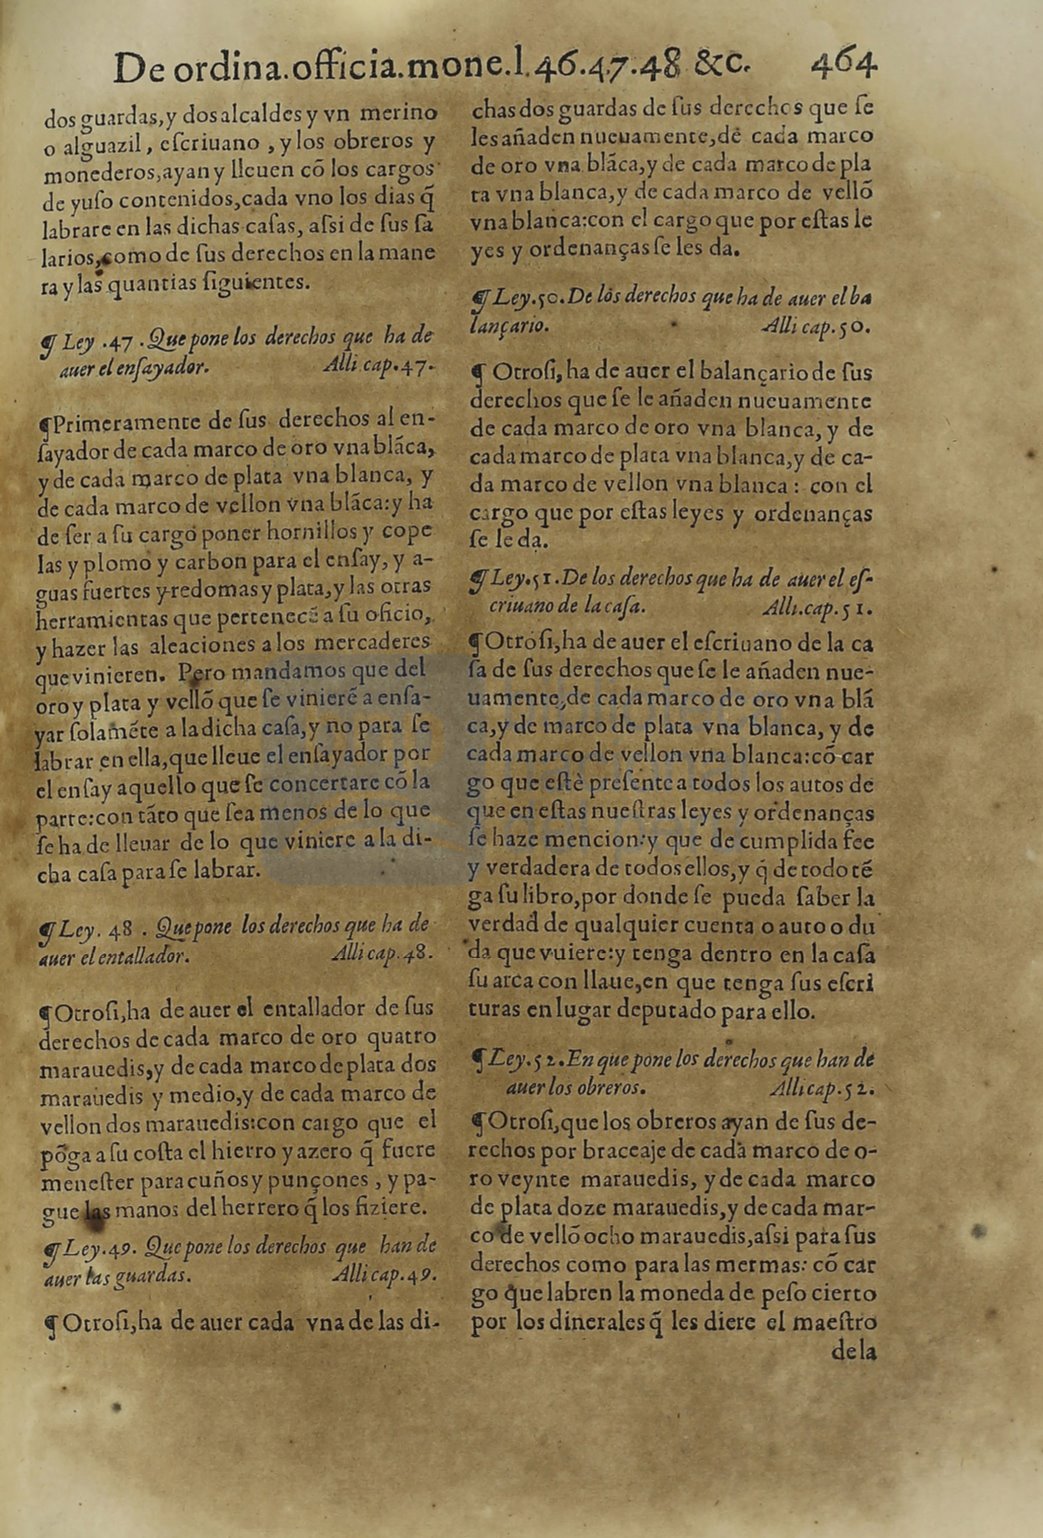 De ordina.officia.mone.l.46.47.48 &c. 464
dos guardas, y dos alcaldes y vn merino
o alguazil, eſcriuano, y los obreros y
monederos, ayan y lleuen cō los cargos
de yuſo contenidos, cada vno los dias q̄
labrare en las dichas caſas, aſsi de ſus ſa
larios, como de ſus derechos en la mane
ra y las quantias ſiguientes.
¶ Ley .47. Que pone los derechos que ha de
auer el enſayador. Alli cap.47.
¶Primeramente de ſus derechos al en-
ſayador de cada marco de oro vna blāca,
y de cada marco de plata vna blanca, y
de cada marco de vellon vna blāca: y ha
de ſer a ſu cargo poner hornillos y cope
las y plomo y carbon para el enſay, y a-
guas fuertes y redomas y plata, y las otras
herramientas que pertenecē a ſu oficio,
y hazer las aleaciones a los mercaderes
que vinieren. Pero mandamos que del
oro y plata y vellō que ſe vinierē a enſa-
yar ſolamēte a la dicha caſa, y no para ſe
labrar en ella, que lleue el enſayador por
el enſay aquello que ſe concertare cō la
parte: con tāto que ſea menos de lo que
ſe ha de lleuar de lo que viniere a la di-
cha caſa para ſe labrar.
¶Ley. 48 . Que pone los derechos que ha de
auer el entallador. Alli cap.48.
¶Otroſi, ha de auer el entallador de ſus
derechos de cada marco de oro quatro
marauedis, y de cada marco de plata dos
marauedis y medio, y de cada marco de
vellon dos marauedis: con cargo que el
pōga a ſu coſta el hierro y azero q̄ fuere
meneſter para cuños y punçones, y pa-
gue las manos del herrero q̄ los fiziere.
¶Ley.49. Que pone los derechos que han de
auer las guardas. Alli cap.49.
¶Otroſi, ha de auer cada vna de las di-
chas dos guardas de ſus derechos que ſe
les añaden nueuamente, de cada marco
de oro vna blāca, y de cada marco de pla
ta vna blanca, y de cada marco de vellō
vna blanca: con el cargo que por eſtas le
yes y ordenanças ſe les da.
¶Ley.50. De los derechos que ha de auer el ba
lançario. Alli cap.50.
¶ Otroſi, ha de auer el balançario de ſus
derechos que ſe le añaden nueuamente
de cada marco de oro vna blanca, y de
cada marco de plata vna blanca, y de ca-
da marco de vellon vna blanca: con el
cargo que por eſtas leyes y ordenanças
ſe le da.
¶Ley.51. De los derechos que ha de auer el eſ-
criuano de la caſa. Alli.cap.51.
¶Otroſi, ha de auer el eſcriuano de la ca
ſa de ſus derechos que ſe le añaden nue-
uamente, de cada marco de oro vna blā
ca, y de marco de plata vna blanca, y de
cada marco de vellon vna blanca: cō car
go que eſtè preſente a todos los autos de
que en eſtas nueſtras leyes y ordenanças
ſe haze mencion: y que de cumplida fee
y verdadera de todos ellos, y q̄ de todo tē
ga ſu libro, por donde ſe pueda ſaber la
verdad de qualquier cuenta o auto o du
da que vuiere: y tenga dentro en la caſa
ſu arca con llaue, en que tenga ſus eſcri
turas en lugar deputado para ello.
¶Ley.52. En que pone los derechos que han de
auer los obreros. Alli cap.52.
¶Otroſi, que los obreros ayan de ſus de-
rechos por braceaje de cada marco de o-
ro veynte marauedis, y de cada marco
de plata doze marauedis, y de cada mar-
co de vellō ocho marauedis, aſsi para ſus
derechos como para las mermas: cō car
go que labren la moneda de peſo cierto
por los dinerales q̄ les diere el maeſtro
de la